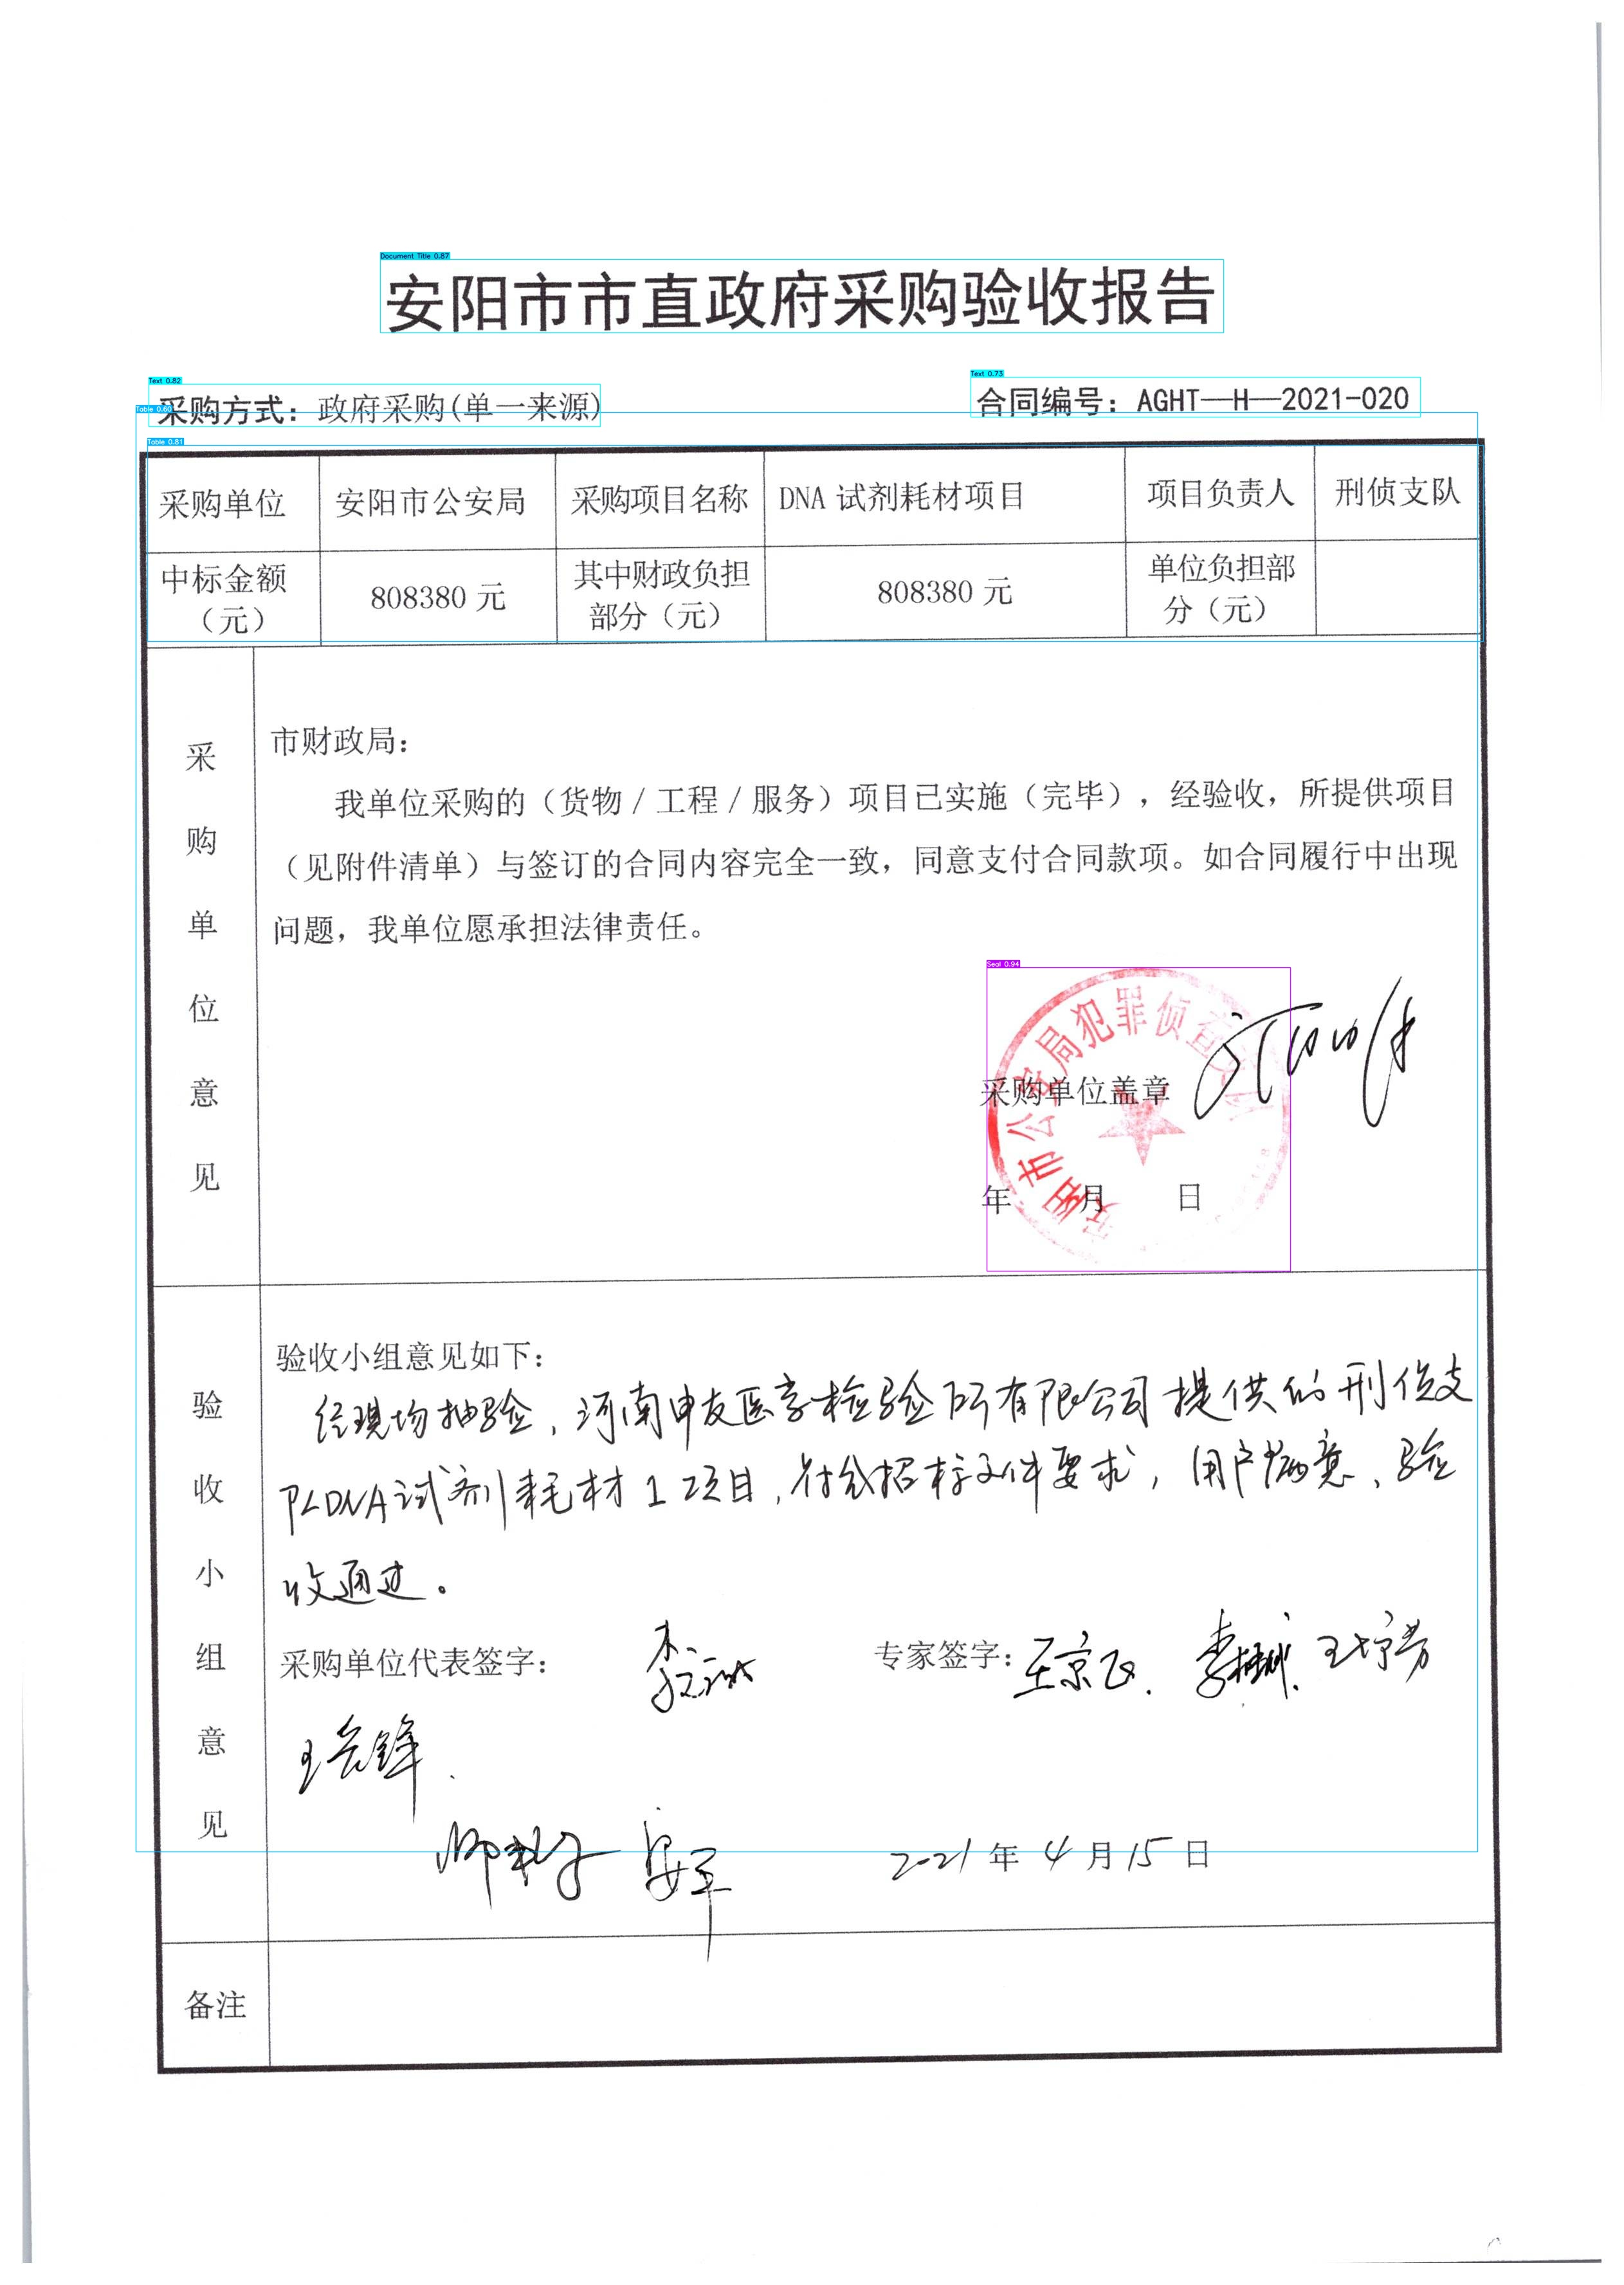 Document Title 0.87
安阳市市直政府采购验收报告
Text 0.82
采购方式：政府采购(单一来源)
Text 0.73
合同编号：AGHT—H—2021-020
Table 0.60
Table 0.81
采购单位 安阳市公安局 采购项目名称 DNA 试剂耗材项目 项目负责人 刑侦支队
中标金额（元） 808380 元 其中财政负担部分（元） 808380 元 单位负担部分（元）
采购单位意见
市财政局：
我单位采购的（货物／工程／服务）项目已实施（完毕），经验收，所提供项目
（见附件清单）与签订的合同内容完全一致，同意支付合同款项。如合同履行中出现
问题，我单位愿承担法律责任。
Seal 0.94
安阳市公安局犯罪侦查支队
采购单位盖章
年 月 日
验收小组意见
验收小组意见如下：
经现场抽验，河南申友医学检验所有限公司提供的刑侦支
队DNA试剂耗材1项目，符合招标文件要求，用户满意，验
收通过。
采购单位代表签字：
专家签字：王京飞.
2021 年 4 月 15 日
备注